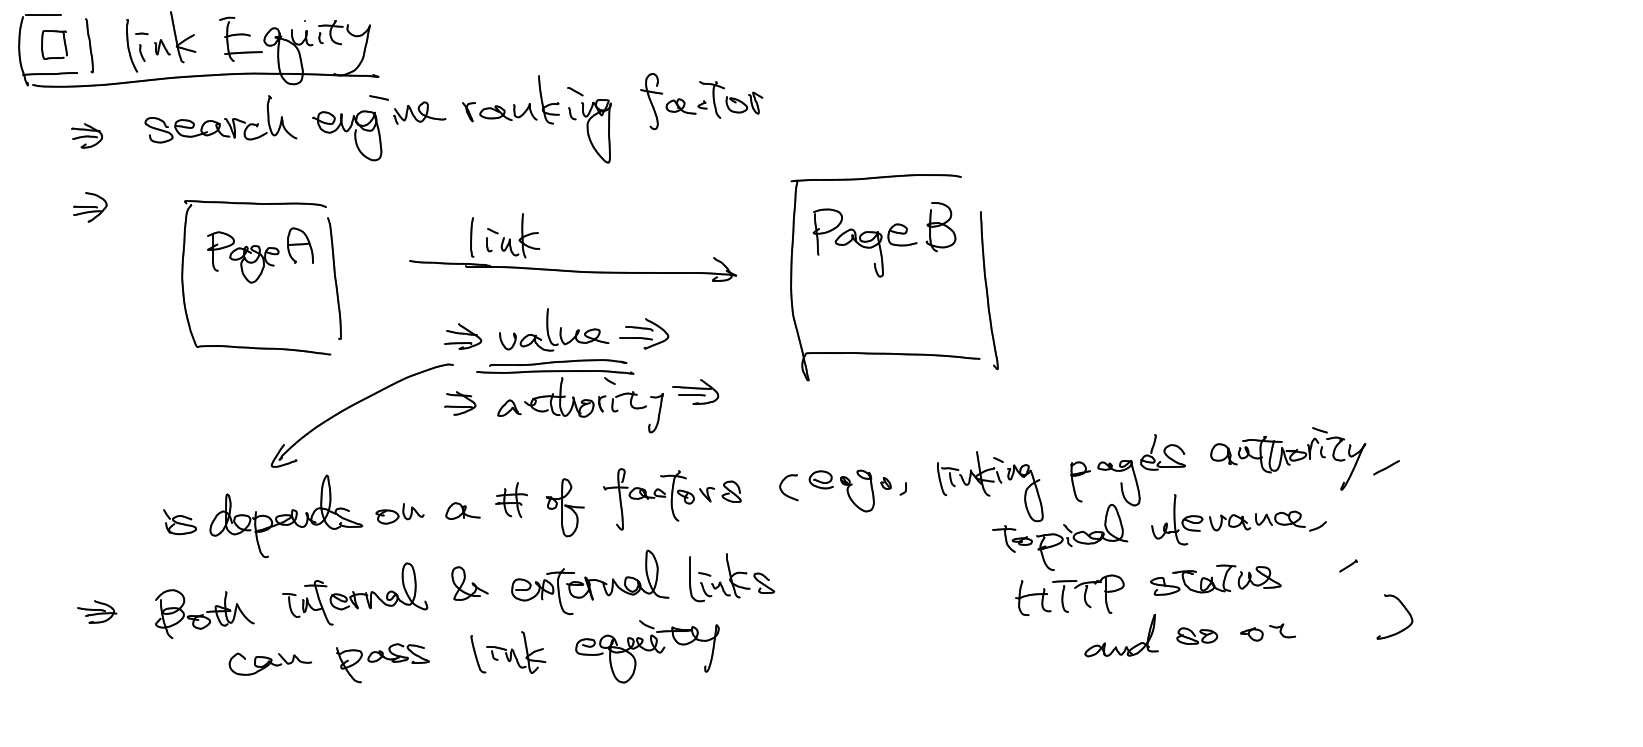 link Equity
⇒ search engine ranking factor
⇒
Page A
link
Page B
⇒ value ⇒
⇒ authority ⇒
is depends on a # of factors (e.g., linking page's authority,
topical relevance,
HTTP status,
and so on)
⇒ Both internal & external links
can pass link equity